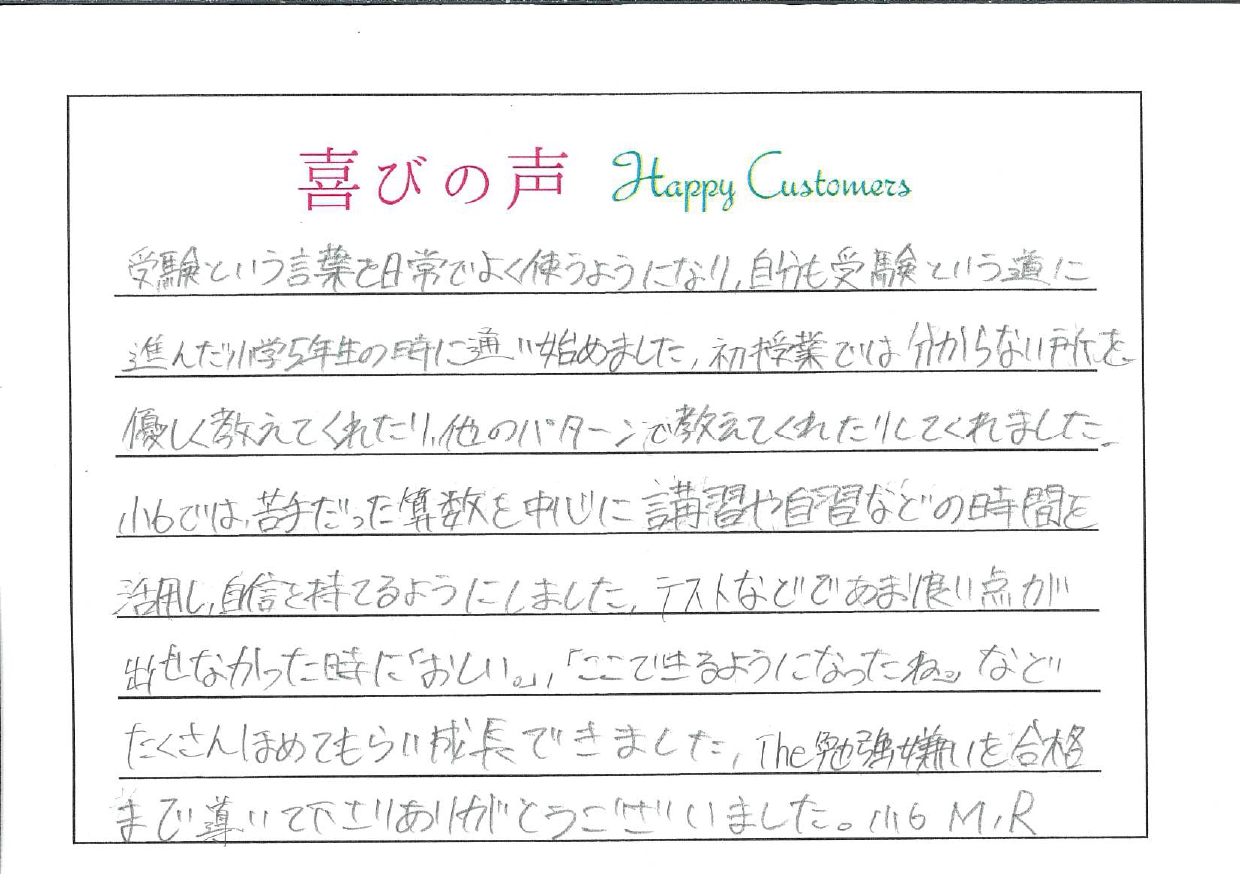 喜びの声 Happy Customers
受験という言葉を日常でよく使うようになり,自分も受験という道に
進んだ小学5年生の時に通い始めました,初授業では分からない所を
優しく教えてくれたり,他のパターンで教えてくれたりしてくれました。
小6では,苦手だった算数を中心に講習や自習などの時間を
活用し,自信を持てるようにしました,テストなどであまり良い点が
出せなかった時に「おしい。」,「ここできるようになったね。」など
たくさんほめてもらい成長できました,The勉強嫌いを合格
まで導いて下さりありがとうございました。小6 M,R